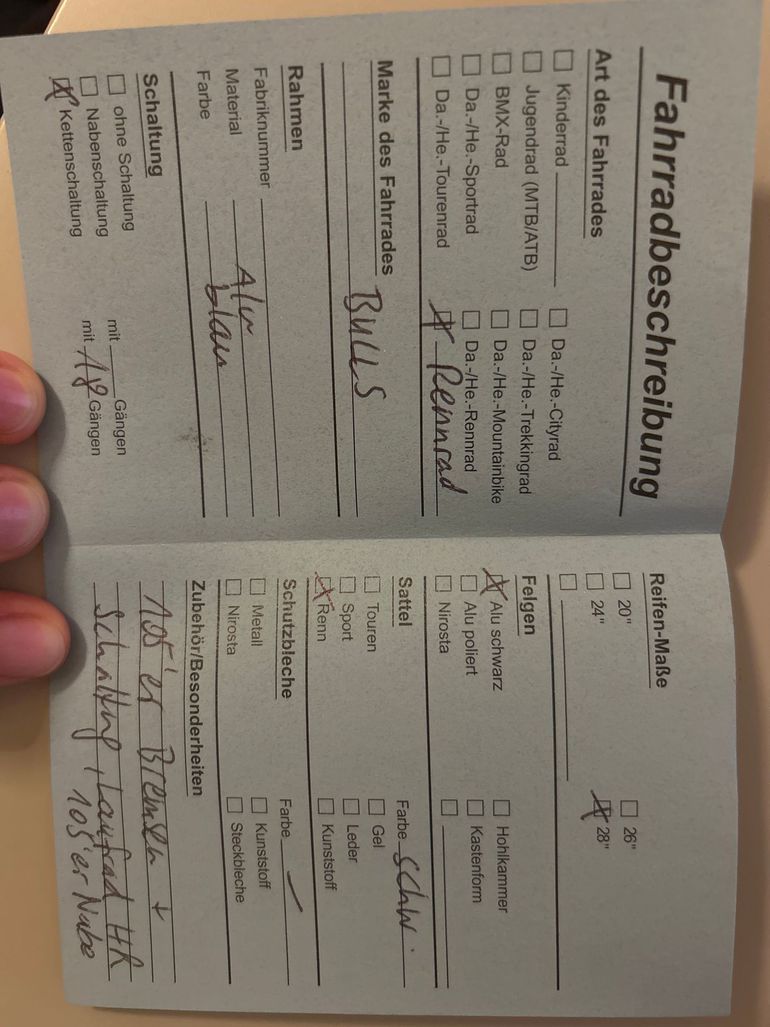 Fahrradbeschreibung
Art des Fahrrades
☐ Kinderrad ________ ☐ Da.-/He.-Cityrad
☐ Jugendrad (MTB/ATB) ☐ Da.-/He.-Trekkingrad
☐ BMX-Rad ☐ Da.-/He.-Mountainbike
☐ Da.-/He.-Sportrad ☐ Da.-/He.-Rennrad
☐ Da.-/He.-Tourenrad ☒ Rennrad
Marke des Fahrrades BULLS
Rahmen
Fabriknummer
Material Alu
Farbe blau
Schaltung
☐ ohne Schaltung
☐ Nabenschaltung mit ____ Gängen
☒ Kettenschaltung mit 18 Gängen
Reifen-Maße
☐ 20" ☐ 26"
☐ 24" ☒ 28"
☐ ________
Felgen
☒ Alu schwarz ☐ Hohlkammer
☐ Alu poliert ☐ Kastenform
☐ Nirosta ☐ ________
Sattel Farbe schw.
☐ Touren ☐ Gel
☐ Sport ☐ Leder
☒ Renn ☐ Kunststoff
Schutzbleche Farbe /
☐ Metall ☐ Kunststoff
☐ Nirosta ☐ Steckbleche
Zubehör/Besonderheiten
105'er Bremsen +
Schaltung, Laufrad HR
105'er Nabe